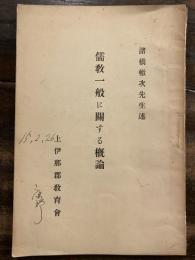 諸橋轍次先生述
儒教一般に關する概論
上伊那郡教育會
15,2,26